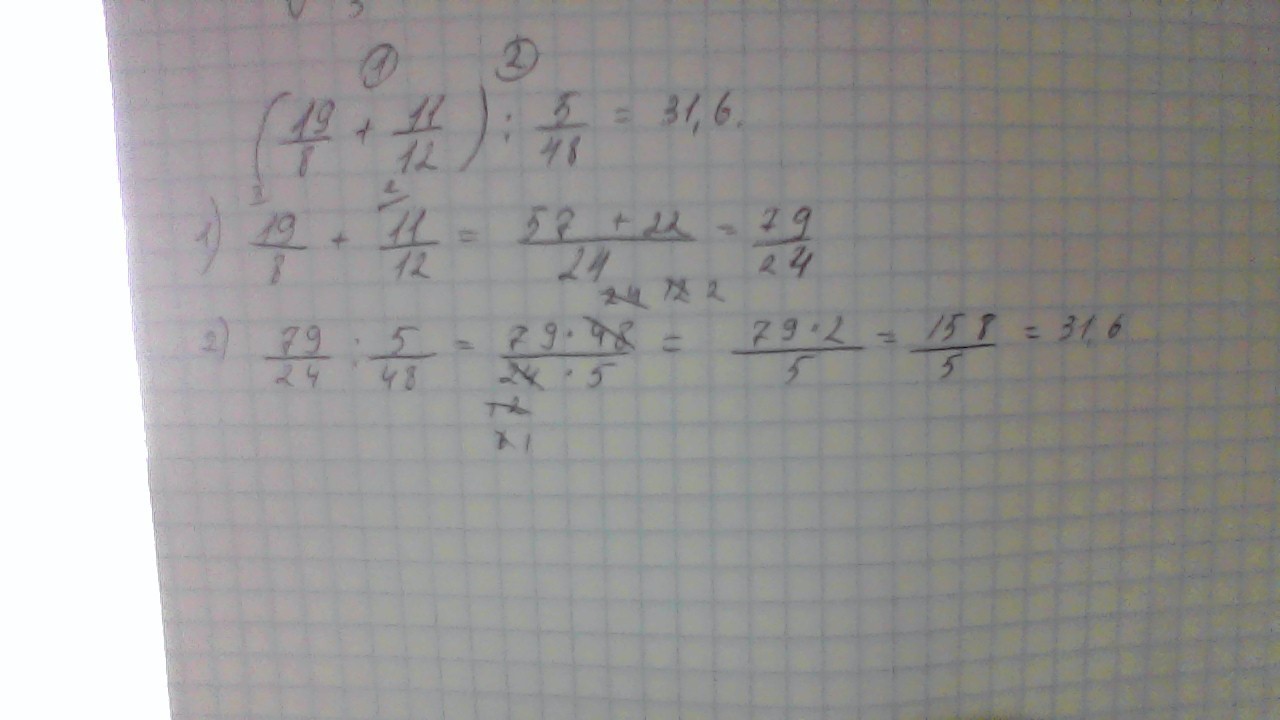 ① ②
(19/8 + 11/12) : 5/48 = 31,6.
3 2
1) 19/8 + 11/12 = 57 + 22/24 = 79/24
24 12 2
2) 79/24 : 5/48 = 79 · 48/24 · 5 = 79 · 2/5 = 158/5 = 31,6
12
1